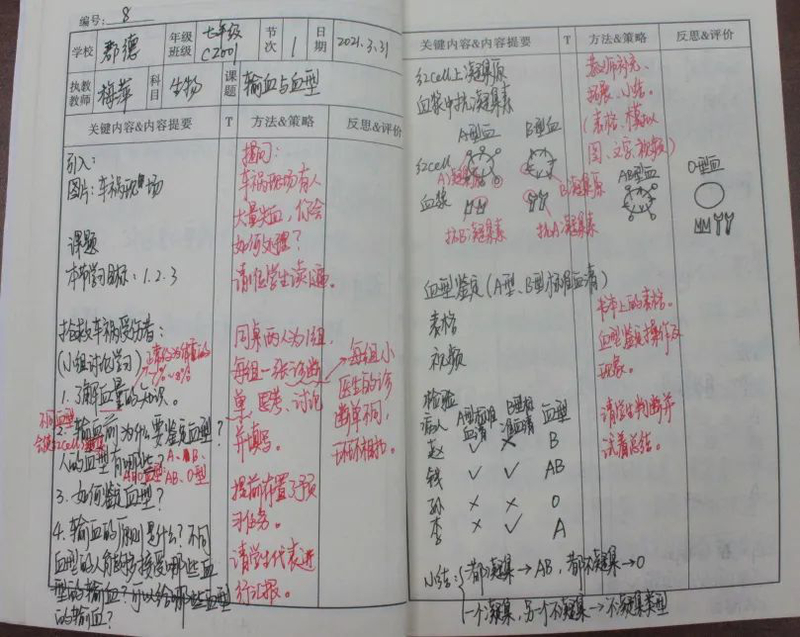 编号: 8
学校 郡德 年级班级 七年级 C2001 节次 1 日期 2021.3.31
执教教师 梅萍 科目 生物 课题 输血与血型
关键内容&内容提要 T 方法&策略 反思&评价
引入:
图片:车祸现场
课题
本节学习目标:1.2.3
抢救车祸受伤者:
(小组讨论学习)
1.了解血量的知识。
2.输血前为什么要鉴定血型?
人的血型有哪些?
A、B、
AB、O型
3.如何鉴定血型?
4.输血的原则是什么?不同
血型的人能够接受哪些血
型的输血?可以给哪些血型
的输血?
不同血型
提问:
车祸现场有人
大量失血,你会
如何处理?
请1位学生读题。
同桌两人为1组,
每组一张诊断
单,思考、讨论
并填写。
提前布置了预
习任务。
请学生代表进
行汇报。
每组小
医生的诊
断单不同,
环环相扣。
关键内容&内容提要 T 方法&策略 反思&评价
红cell上凝集原
血浆中抗凝集素
A型血 B型血
红cell
A凝集原 B凝集原
血浆
抗B凝集素 抗A凝集素
AB型血
O型血
教师补充、
拓展、小结。
(表格、模拟
图、文字、视频)
血型鉴定(A型、B型标准血清)
表格
视频
书本上的表格。
血型鉴定操作及
现象。
检验病人 A型标准血清 B型标准血清 血型
赵 ✓ × B
钱 ✓ ✓ AB
孙 × × O
李 × ✓ A
请学生判断并
试着总结。
小结:都凝集→AB,都不凝集→O
一个凝集,另一个不凝集→不凝集类型